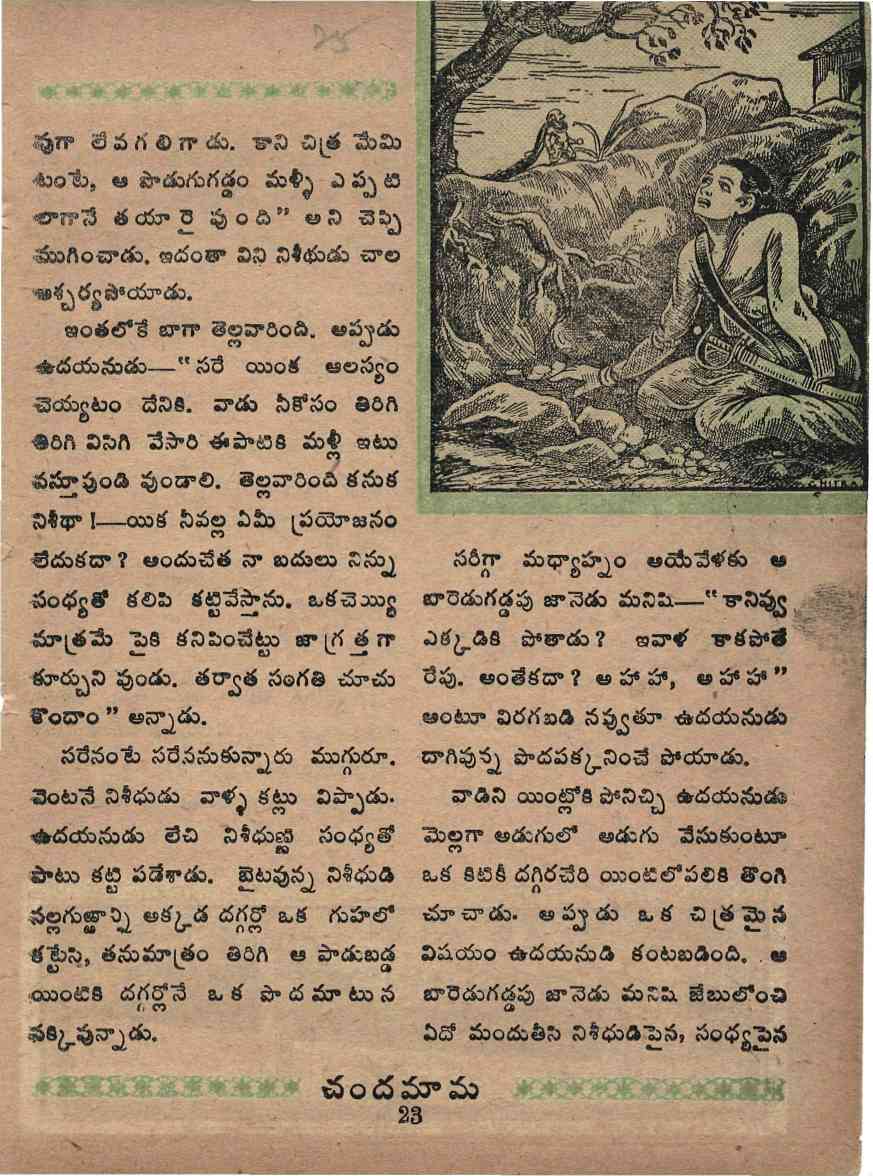 వుగా లేవగలిగాడు. కాని చిత్ర మేమి
టంటే, ఆ పొడుగుగడ్డం మళ్ళీ ఎప్పటి
లాగానే తయారై పుంది” అని చెప్పి
ముగించాడు. ఇదంతా విని నిశీథుడు చాల
ఆశ్చర్యపోయాడు.
ఇంతలోకే బాగా తెల్లవారింది. అప్పుడు
ఉదయనుడు—“సరే యింక ఆలస్యం
చెయ్యటం దేనికి. వాడు నీకోసం తిరిగి
తిరిగి విసిగి వేసారి ఈపాటికి మళ్లీ ఇటు
వస్తూవుండి వుండాలి. తెల్లవారింది కనుక
నిశీథా!—యిక నీవల్ల ఏమీ ప్రయోజనం
లేదుకదా? అందుచేత నా బదులు నిన్ను
సంధ్యతో కలిపి కట్టివేస్తాను. ఒకచెయ్యి
మాత్రమే పైకి కనిపించేట్టు జాగ్రత్తగా
కూర్చుని వుండు. తర్వాత సంగతి చూచు
కొందాం” అన్నాడు.
సరేనంటే సరేననుకున్నారు ముగ్గురూ.
వెంటనే నిశీధుడు వాళ్ళ కట్లు విప్పాడు.
ఉదయనుడు లేచి నిశీధుణ్ణి సంధ్యతో
పాటు కట్టి పడేశాడు. బైటవున్న నిశీథుడి
నల్లగుఱ్ఱాన్ని అక్కడ దగ్గర్లో ఒక గుహలో
కట్టేసి, తనుమాత్రం తిరిగి ఆ పాడుబడ్డ
యింటికి దగ్గర్లోనే ఒక పొదమాటున
నక్కివున్నాడు.
సరీగ్గా మధ్యాహ్నం అయేవేళకు ఆ
బారెడుగడ్డపు జానెడు మనిషి—“కానివ్వు
ఎక్కడికి పోతాడు? ఇవాళ కాకపోతే
రేపు. అంతేకదా? అహాహా, అహాహా”
అంటూ విరగబడి నవ్వుతూ ఉదయనుడు
దాగివున్న పొదపక్కనించే పోయాడు.
వాడిని యింట్లోకి పోనిచ్చి ఉదయనుడు
మెల్లగా అడుగులో అడుగు వేసుకుంటూ
ఒక కిటికీ దగ్గిరచేరి యింటిలోపలికి తొంగి
చూచాడు. అప్పుడు ఒక చిత్రమైన
విషయం ఉదయనుడి కంటబడింది. ఆ
బారెడుగడ్డపు జానెడు మనిషి జేబులోంచి
ఏదో మందుతీసి నిశీధుడిపైన, సంధ్యపైన
చందమామ
23